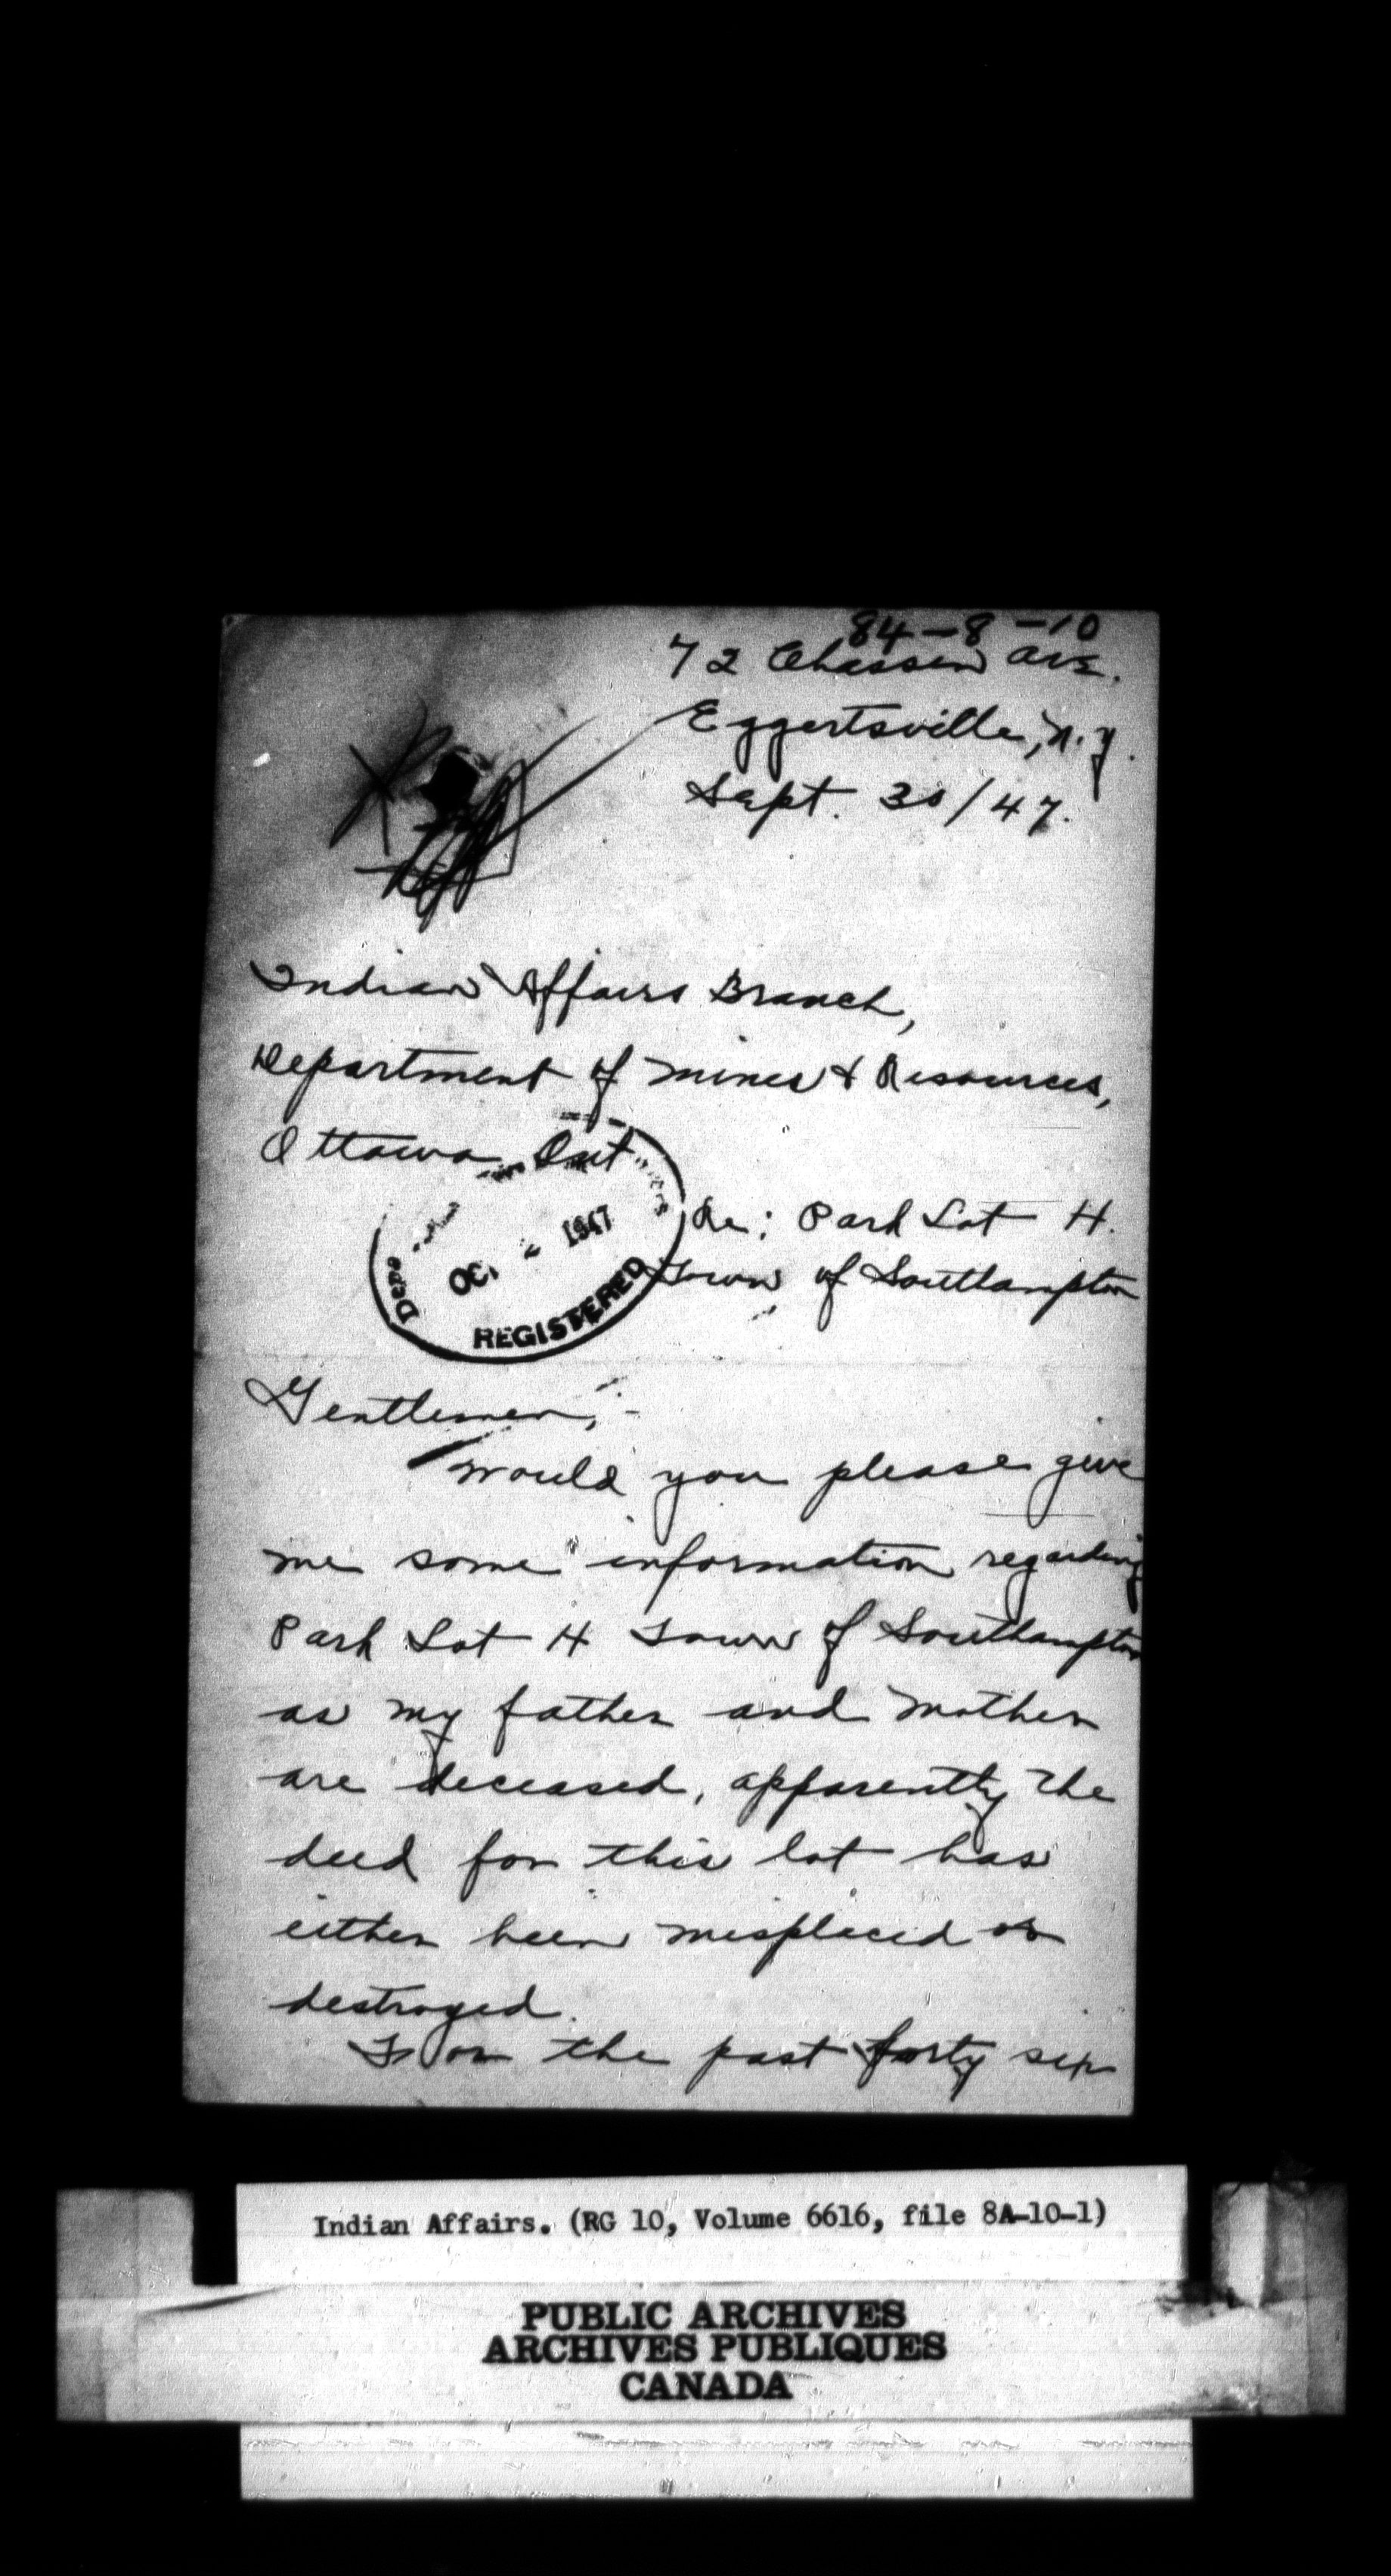 84-8-10
72 Chassin Ave.
Eggertsville, N.Y.
Sept. 30/47.
Indian Affairs Branch,
Department of Mines & Resources,
Ottawa Ont
OCT 2 1947
REGISTERED
Re: Park Lot H.
Town of Southampton
Gentlemen,-
Would you please give
me some information regarding
Park Lot H Town of Southampton
as my father and mother
are deceased, apparently the
deed for this lot has
either been misplaced or
destroyed.
For the past forty six
Indian Affairs. (RG 10, Volume 6616, file 8A-10-1)
PUBLIC ARCHIVES
ARCHIVES PUBLIQUES
CANADA